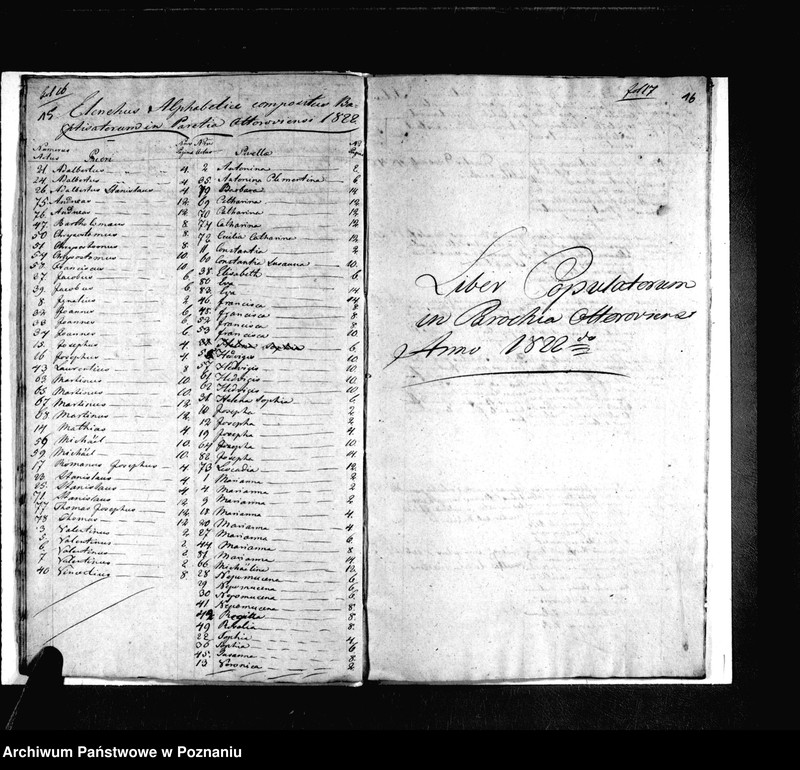 fol 16
15
Elenchus Alphabetice compositus Ba-
ptisatorum in Paretia Ottoroviensi 1822
Numerus Actus
Pueri
Nrus Pagina
21 Adalbertus 4.
24 Adalbertus 4.
26 Adalbertus Stanislaus 4
75 Andreas 12.
76 Andreas 12.
47 Bartholomaeus 8.
50 Chrysostomus 8.
51 Chrysostomus 8.
54 Chrysostomus 10.
Franciscus
27 Jacobus 6.
39 Jacobus 6.
8 Ignatius 2
32 Joannes 6.
33 Joannes 6.
37 Joannes 6.
15 Josephus 4.
16 Josephus 4
43 Laurentius 8
63 Martinus 10
65 Martinus 10.
67 Martinus 12.
68 Martinus 12.
14 Mathias 4.
56 Michaël 10.
59 Michaël 10.
17 Romanus Josephus 4
23 Stanislaus 4
25 Stanislaus 4
71 Stanislaus 12
77 Thomas Josephus 12
78 Thomas 12
3 Valentinus 2
5 Valentinus 2
6 Valentinus 2
7 Valentinus 2
40 Venceslaus 8.
Nrus Actus
Puella
2 Antonina 2
35 Antonina Clementina 6
79 Barbara 14
69 Catharina 12
70 Catharina 12
74 Catharina 12
72 Cecilia Catharina 12
11 Constantia 2
60 Constantia Susanna 10.
38 Elisabeth 6
80 Eva
83 Eva 14
46 Francisca 8
48 Francisca 8
52 Francisca 8
53 Francisca 10
Helena Sophia 6
Hedvigis 10
55 Hedvigis 10.
61 Hedvigis 10.
62 Hedvigis 10.
36 Helena Sophia 6
10 Josepha 2
12 Josepha 2
19 Josepha 4
64 Josepha 10
82 Josepha 14
73 Leocadia 12.
1 Marianna 2
4 Marianna 2
9 Marianna 2
18 Marianna 4
20 Marianna 4
27 Marianna 6
44 Marianna 8
81 Marianna 14
66 Michaelina 12
28 Nepomucena 6
29 Nepomucena 6
30 Nepomucena 6
41 Nepomucena 8
42 8.
49 Rosalia 8.
22 Sophia 4
30 Sophia 6
45 Susanna 8
13 Veronica 2
fol 17
16
Liber Copulatorum
in Brochia Ottoroviensi
Anno 1822do
Archiwum Państwowe w Poznaniu